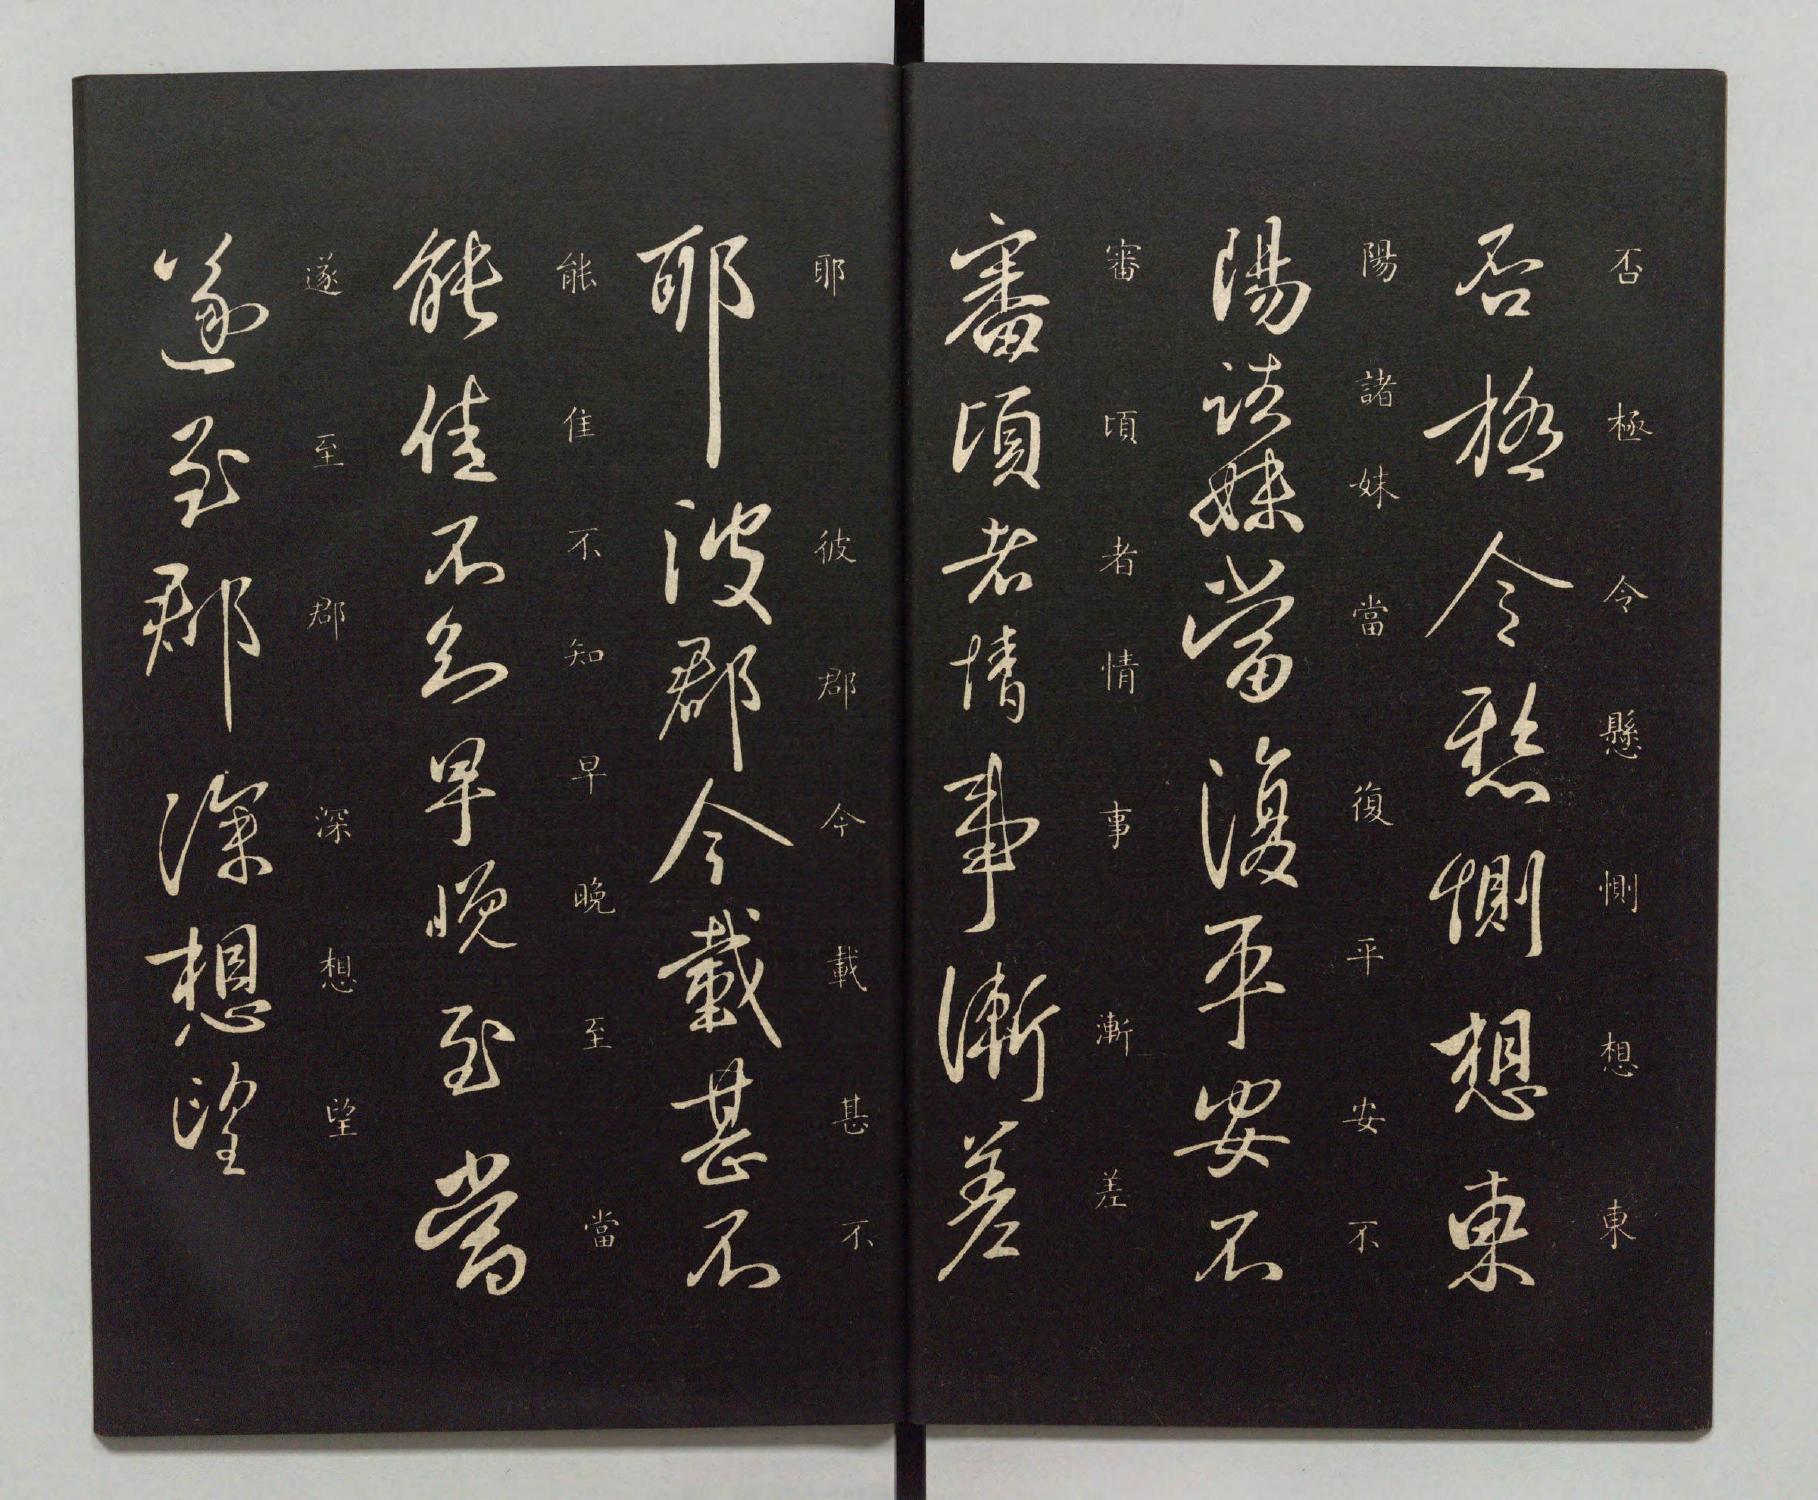 否極令懸惻想東
否極令懸惻想東
陽諸妹當復平安不
陽諸妹當復平安不
審頃者情事漸差
審頃者情事漸差
耶彼郡今載甚不
耶彼郡今載甚不
能佳不知早晚至當
能佳不知早晚至當
遂至郡深想望
遂至郡深想望